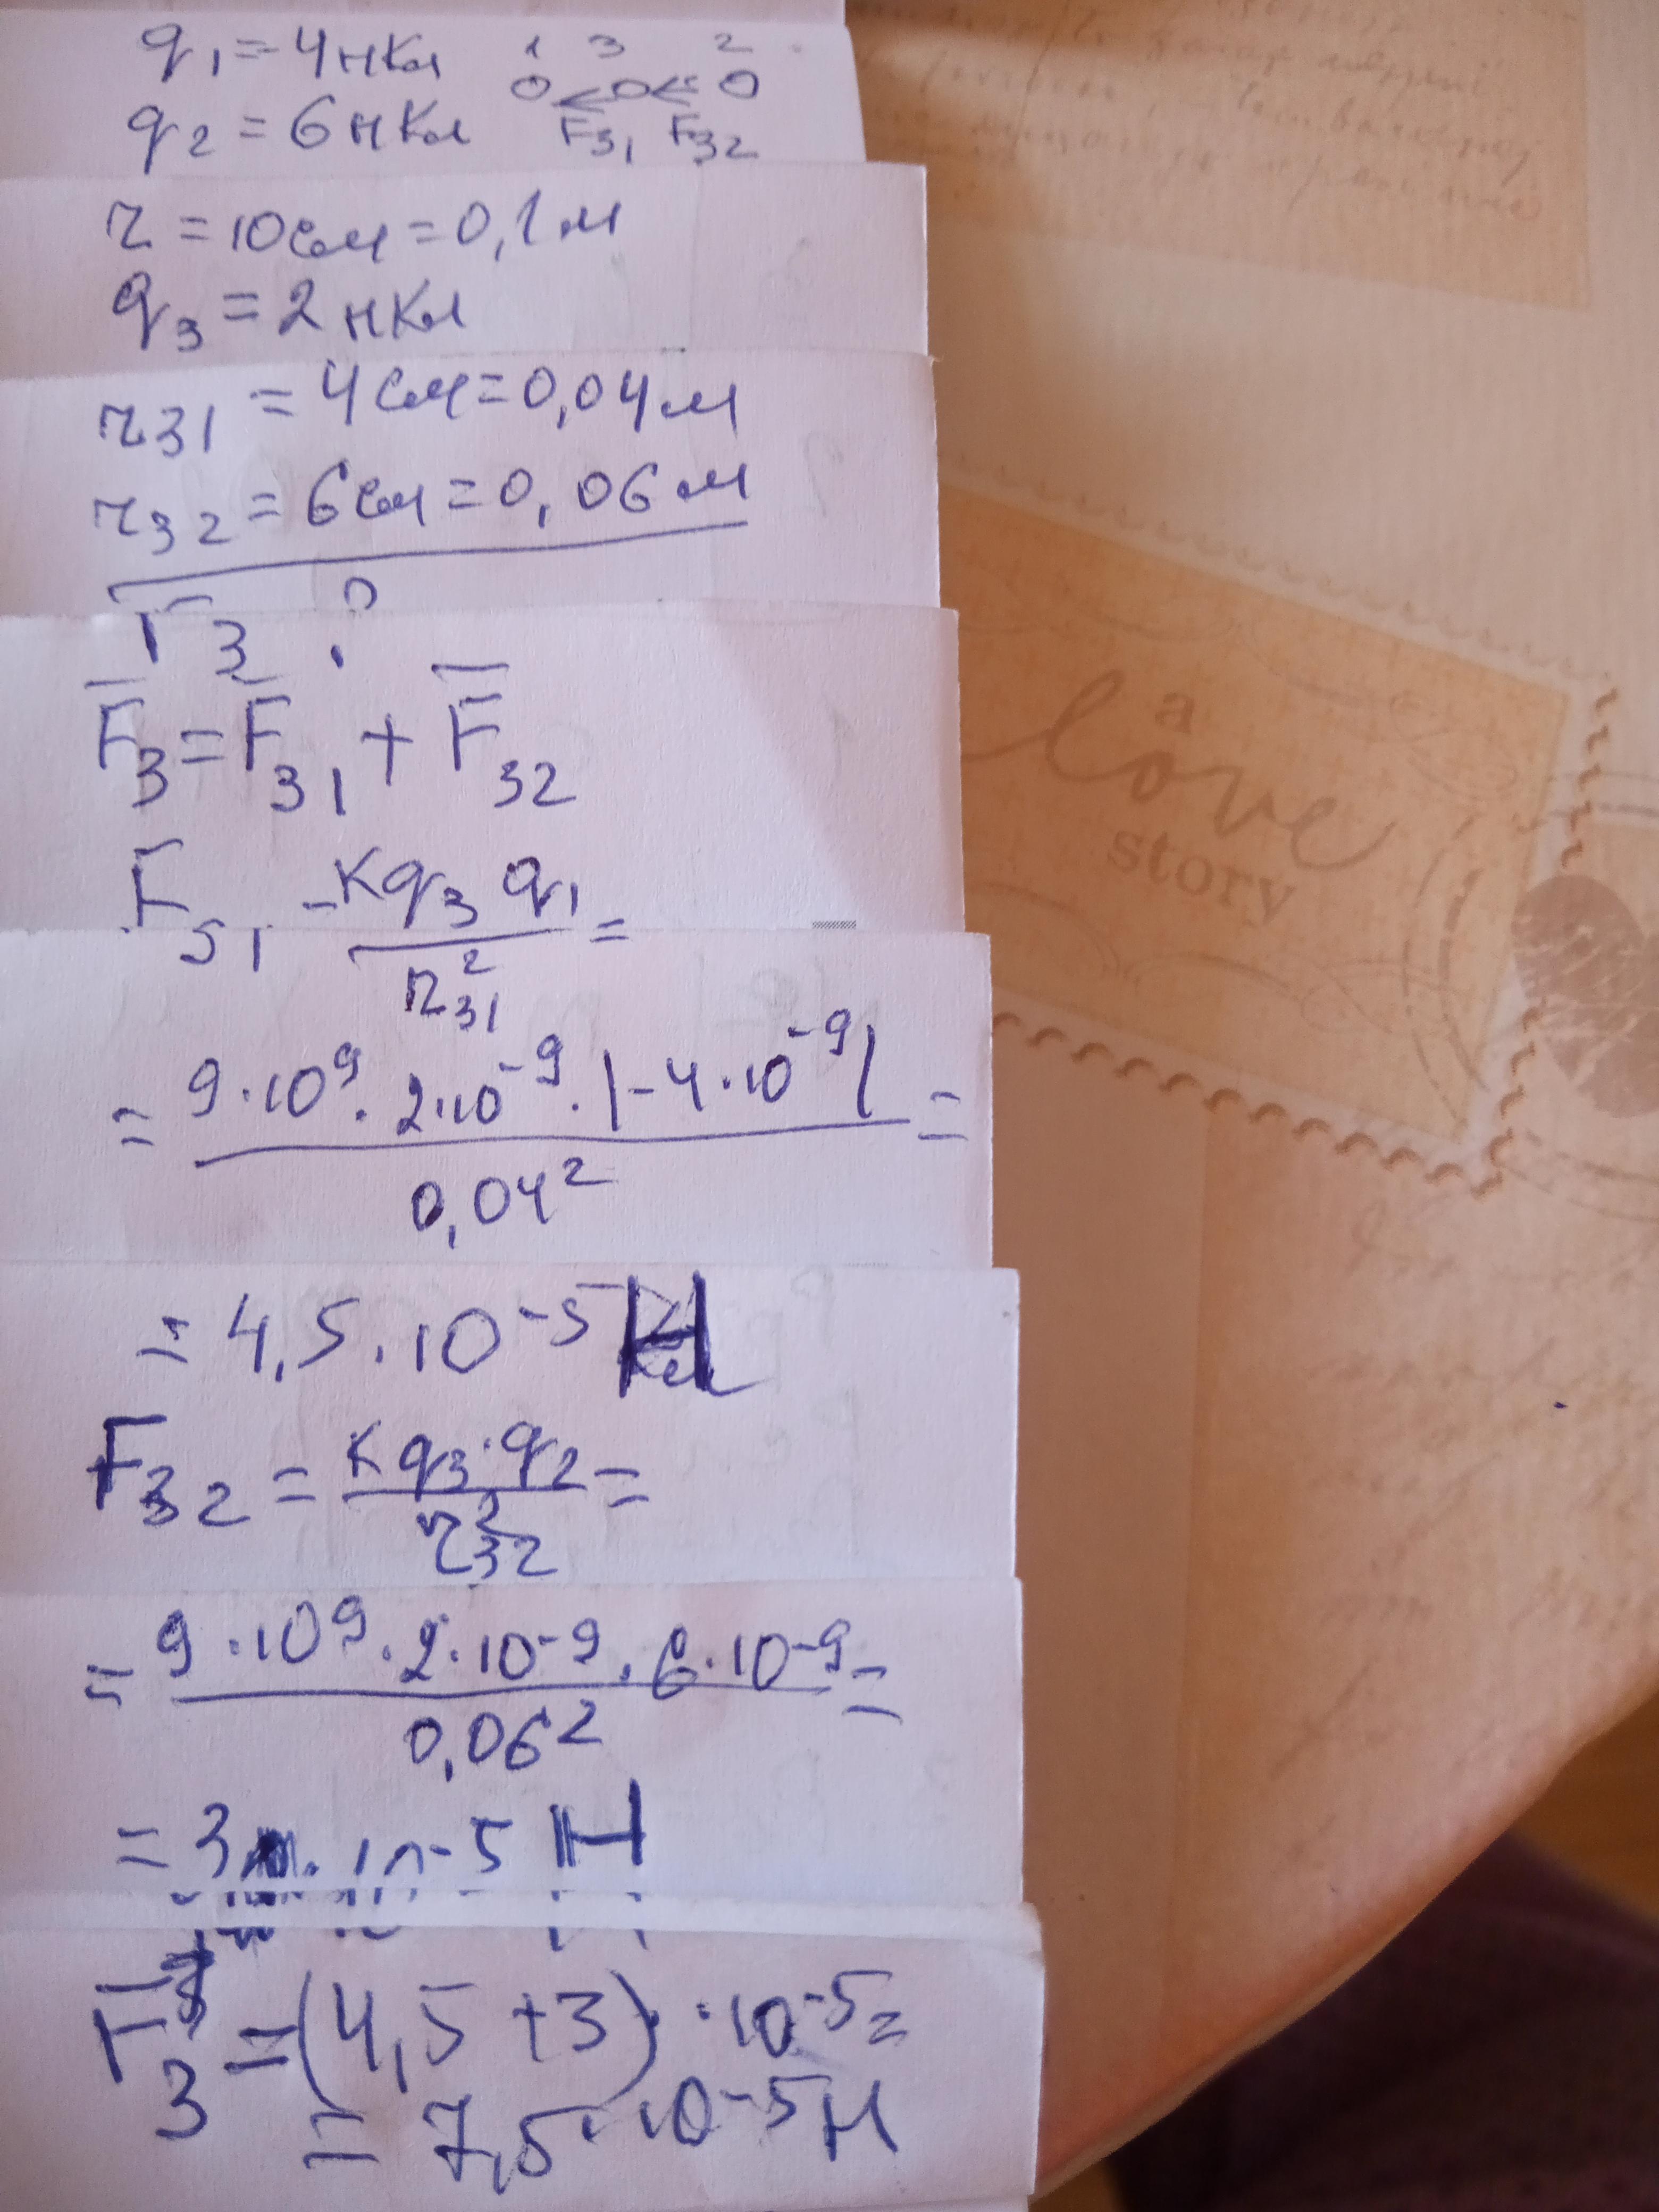 q₁ = 4 нКл 1 3 2
q₂ = 6 нКл F₃₁ F₃₂
r = 10 см = 0,1 м
q₃ = 2 нКл
r₃₁ = 4 см = 0,04 м
r₃₂ = 6 см = 0,06 м
F₃ ?
F̅₃ = F̅₃₁ + F̅₃₂
F₃₁ = kq₃q₁ / r₃₁² =
= 9·10⁹·2·10⁻⁹·|-4·10⁻⁹| / 0,04² =
= 4,5·10⁻⁵ Н
F₃₂ = kq₃·q₂ / r₃₂² =
= 9·10⁹·2·10⁻⁹·6·10⁻⁹ / 0,06² =
= 3·10⁻⁵ Н
F̅₃ = (4,5 + 3)·10⁻⁵ =
= 7,5·10⁻⁵ Н
a
love
story